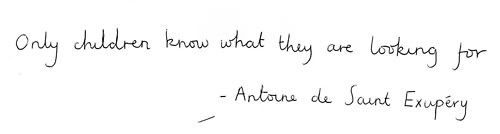 Only children know what they are looking for
- Antoine de Saint Exupéry